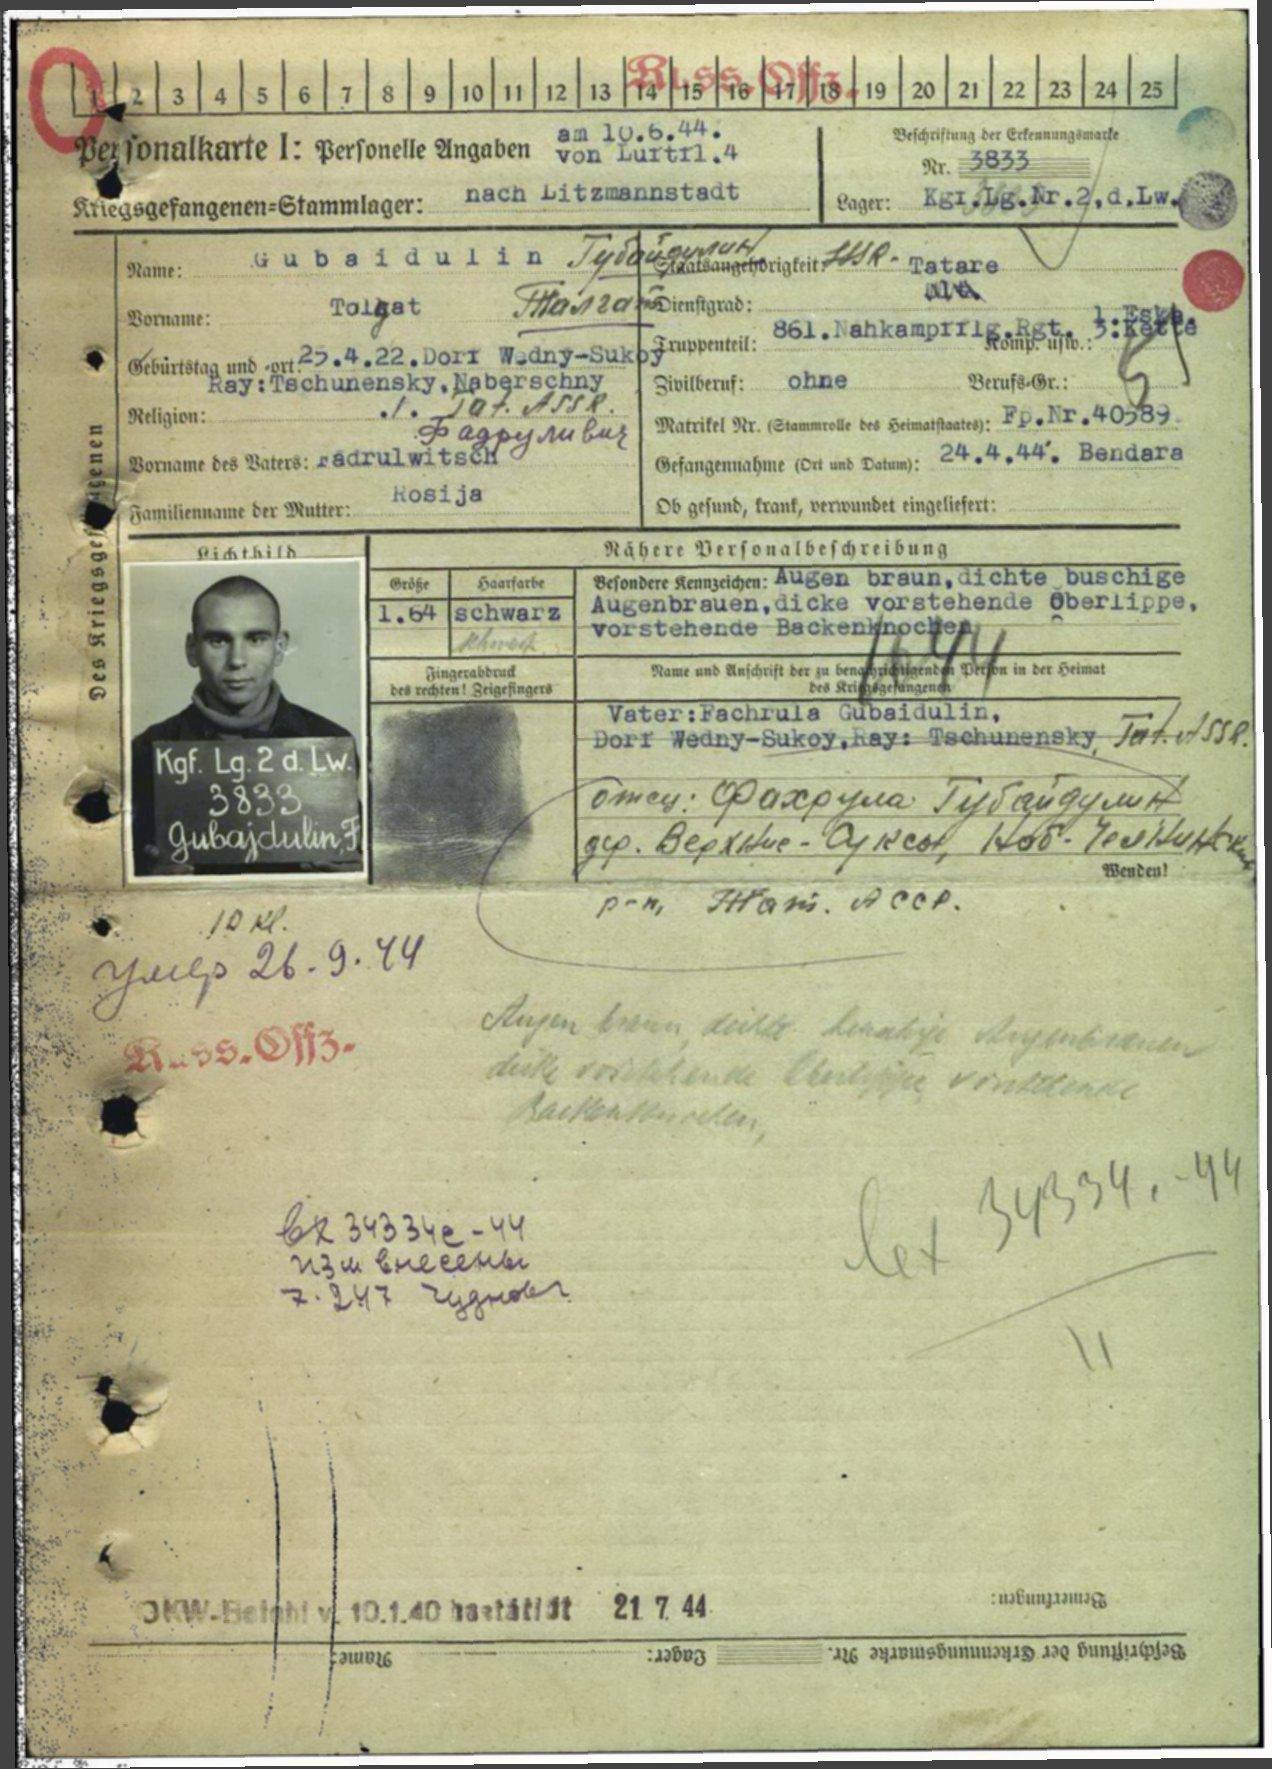 1 2 3 4 5 6 7 8 9 10 11 12 13 14 15 16 17 18 19 20 21 22 23 24 25
Russ. Offz.
Personalkarte I: Personelle Angaben
am 10.6.44.
von Luftfl.4
Beschriftung der Erkennungsmarke
Nr. 3833
Kriegsgefangenen=Stammlager: nach Litzmannstadt
Lager: Kgf.Lg.Nr.2,d.Lw.
Des Kriegsgefangenen
Name: Gubaidulin Губайдулин
Staatsangehörigkeit: SSR - Tatare
Vorname: Tolgat Талгат
Dienstgrad:
Geburtstag und -ort: 25.4.22.Dorf Wedny-Sukoy
Ray:Tschunensky,Naberschny
Truppenteil: 861.Nahkampfflg.Rgt. Komp. usw.: 3.Kette
1.Eska.
Zivilberuf: ohne Berufs-Gr.:
Religion: Tat. ASSR.
Matrikel Nr. (Stammrolle des Heimatstaates): Fp.Nr.40589
Фадруливич
Vorname des Vaters: Fadrulwitsch
Gefangennahme (Ort und Datum): 24.4.44. Bendara
Familienname der Mutter: Rosija
Ob gesund, krank, verwundet eingeliefert:
Lichtbild
Nähere Personalbeschreibung
Größe Haarfarbe
1.64 schwarz
schwarz
Besondere Kennzeichen: Augen braun,dichte buschige
Augenbrauen,dicke vorstehende Oberlippe,
vorstehende Backenknochen
1944
Fingerabdruck
des rechten! Zeigefingers
Name und Anschrift der zu benachrichtigenden Person in der Heimat
des Kriegsgefangenen
Vater:Fachrula Gubaidulin,
Dorf Wedny-Sukoy,Ray: Tschunensky, Tat. ASSR.
отец: Фахрула Губайдулин
дер. Верхние-Суксы, Наб-Челнинский
р-н, Тат. АССР.
Wenden!
Kgf. Lg. 2 d. Lw.
3833
Gubajdulin, F
10 кл.
умер 26.9.44
Russ. Offz.
Augen braun, dichte buschige Augenbrauen
dicke vorstehende Oberlippe, vorstehende
Backenknochen,
вх 34334с-44
изм внесены
7.247 Чуднова
вх 34334с-44
11
OKW-Befehl v. 10.1.40 bestätigt 21 7 44
Bemerkungen:
Beschriftung der Erkennungsmarke Nr. Lager: Name: